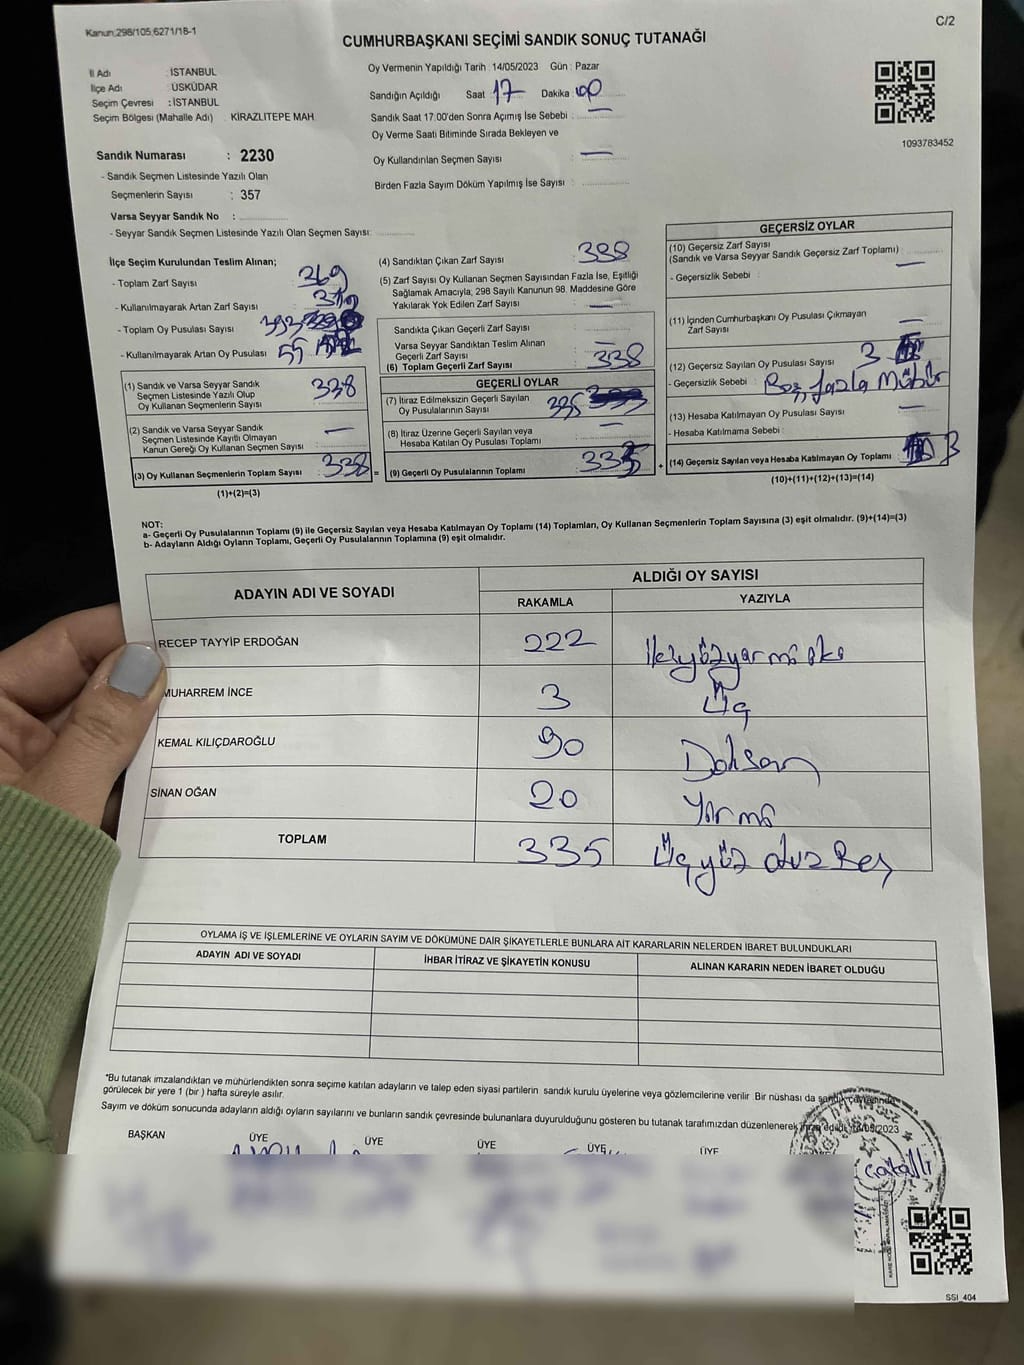 Kanun:298/105,6271/18-1
C/2
CUMHURBAŞKANI SEÇİMİ SANDIK SONUÇ TUTANAĞI
İl Adı : İSTANBUL
İlçe Adı : ÜSKÜDAR
Seçim Çevresi : İSTANBUL
Seçim Bölgesi (Mahalle Adı) : KİRAZLITEPE MAH.
Sandık Numarası : 2230
- Sandık Seçmen Listesinde Yazılı Olan
Seçmenlerin Sayısı : 357
Varsa Seyyar Sandık No :
- Seyyar Sandık Seçmen Listesinde Yazılı Olan Seçmen Sayısı:
Oy Vermenin Yapıldığı Tarih : 14/05/2023 Gün : Pazar
Sandığın Açıldığı Saat 17 Dakika 00
Sandık Saat 17.00'den Sonra Açımış İse Sebebi : —
Oy Verme Saati Bitiminde Sırada Bekleyen ve
Oy Kullandırılan Seçmen Sayısı : —
Birden Fazla Sayım Döküm Yapılmış İse Sayısı :
1093783452
İlçe Seçim Kurulundan Teslim Alınan;
- Toplam Zarf Sayısı : 369
- Kullanılmayarak Artan Zarf Sayısı :
- Toplam Oy Pusulası Sayısı : 393
- Kullanılmayarak Artan Oy Pusulası : 55
(1) Sandık ve Varsa Seyyar Sandık
Seçmen Listesinde Yazılı Olup
Oy Kullanan Seçmenlerin Sayısı : 338
(2) Sandık ve Varsa Seyyar Sandık
Seçmen Listesinde Kayıtlı Olmayan
Kanun Gereği Oy Kullanan Seçmen Sayısı : —
(3) Oy Kullanan Seçmenlerin Toplam Sayısı : 338
(1)+(2)=(3)
(4) Sandıktan Çıkan Zarf Sayısı : 338
(5) Zarf Sayısı Oy Kullanan Seçmen Sayısından Fazla İse, Eşitliği
Sağlamak Amacıyla, 298 Sayılı Kanunun 98. Maddesine Göre
Yakılarak Yok Edilen Zarf Sayısı : —
Sandıkta Çıkan Geçerli Zarf Sayısı :
Varsa Seyyar Sandıktan Teslim Alınan
Geçerli Zarf Sayısı : —
(6) Toplam Geçerli Zarf Sayısı : 338
GEÇERLİ OYLAR
(7) İtiraz Edilmeksizin Geçerli Sayılan
Oy Pusulalarının Sayısı : 335
(8) İtiraz Üzerine Geçerli Sayılan veya
Hesaba Katılan Oy Pusulası Toplamı : —
= (9) Geçerli Oy Pusulalarının Toplamı : 335
GEÇERSİZ OYLAR
(10) Geçersiz Zarf Sayısı
(Sandık ve Varsa Seyyar Sandık Geçersiz Zarf Toplamı) : —
- Geçersizlik Sebebi :
(11) İçinden Cumhurbaşkanı Oy Pusulası Çıkmayan
Zarf Sayısı : —
(12) Geçersiz Sayılan Oy Pusulası Sayısı : 3
- Geçersizlik Sebebi : Boş, fazla Mühür
(13) Hesaba Katılmayan Oy Pusulası Sayısı : —
- Hesaba Katılmama Sebebi :
+ (14) Geçersiz Sayılan veya Hesaba Katılmayan Oy Toplamı : 3
(10)+(11)+(12)+(13)=(14)
NOT:
a- Geçerli Oy Pusulalarının Toplamı (9) ile Geçersiz Sayılan veya Hesaba Katılmayan Oy Toplamı (14) Toplamları, Oy Kullanan Seçmenlerin Toplam Sayısına (3) eşit olmalıdır. (9)+(14)=(3)
b- Adayların Aldığı Oyların Toplamı, Geçerli Oy Pusulalarının Toplamına (9) eşit olmalıdır.
ADAYIN ADI VE SOYADI
ALDIĞI OY SAYISI
RAKAMLA YAZIYLA
RECEP TAYYİP ERDOĞAN 222 ikiyüzyirmi iki
MUHARREM İNCE 3 Üç
KEMAL KILIÇDAROĞLU 90 Doksan
SİNAN OĞAN 20 Yirmi
TOPLAM 335 Üçyüz otuz Beş
OYLAMA İŞ VE İŞLEMLERİNE VE OYLARIN SAYIM VE DÖKÜMÜNE DAİR ŞİKAYETLERLE BUNLARA AİT KARARLARIN NELERDEN İBARET BULUNDUKLARI
ADAYIN ADI VE SOYADI İHBAR İTİRAZ VE ŞİKAYETİN KONUSU ALINAN KARARIN NEDEN İBARET OLDUĞU
*Bu tutanak imzalandıktan ve mühürlendikten sonra seçime katılan adayların ve talep eden siyasi partilerin sandık kurulu üyelerine veya gözlemcilerine verilir. Bir nüshası da sandık çevresinde
görülecek bir yere 1 (bir) hafta süreyle asılır.
Sayım ve döküm sonucunda adayların aldığı oyların sayılarını ve bunların sandık çevresinde bulunanlara duyurulduğunu gösteren bu tutanak tarafımızdan düzenlenerek imza edildi. /05/2023
BAŞKAN ÜYE ÜYE ÜYE ÜYE ÜYE
SSI_404